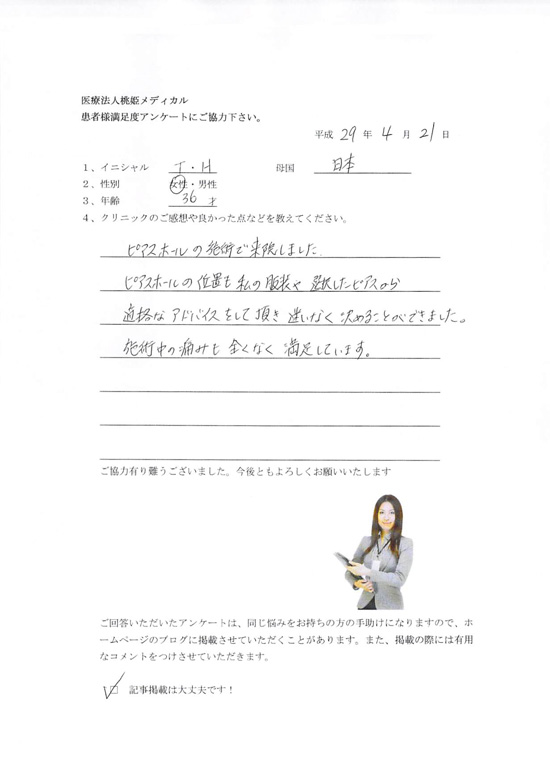 医療法人桃姫メディカル
患者様満足度アンケートにご協力下さい。
平成 29 年 4 月 21 日
1、イニシャル I・H 母国 日本
2、性別 女性・男性
3、年齢 36 才
4、クリニックのご感想や良かった点などを教えてください。
ピアスホールの施術で来院しました
ピアスホールの位置も私の服装や 選択したピアスから
適格な アドバイスをして頂き 迷いなく 決めることができました。
施術中の痛みも 全くなく 満足しています。
ご協力有り難うございました。今後ともよろしくお願いいたします
ご回答いただいたアンケートは、同じ悩みをお持ちの方の手助けになりますので、ホ
ームページのブログに掲載させていただくことがあります。また、掲載の際には有用
なコメントをつけさせていただきます。
☑ 記事掲載は大丈夫です！